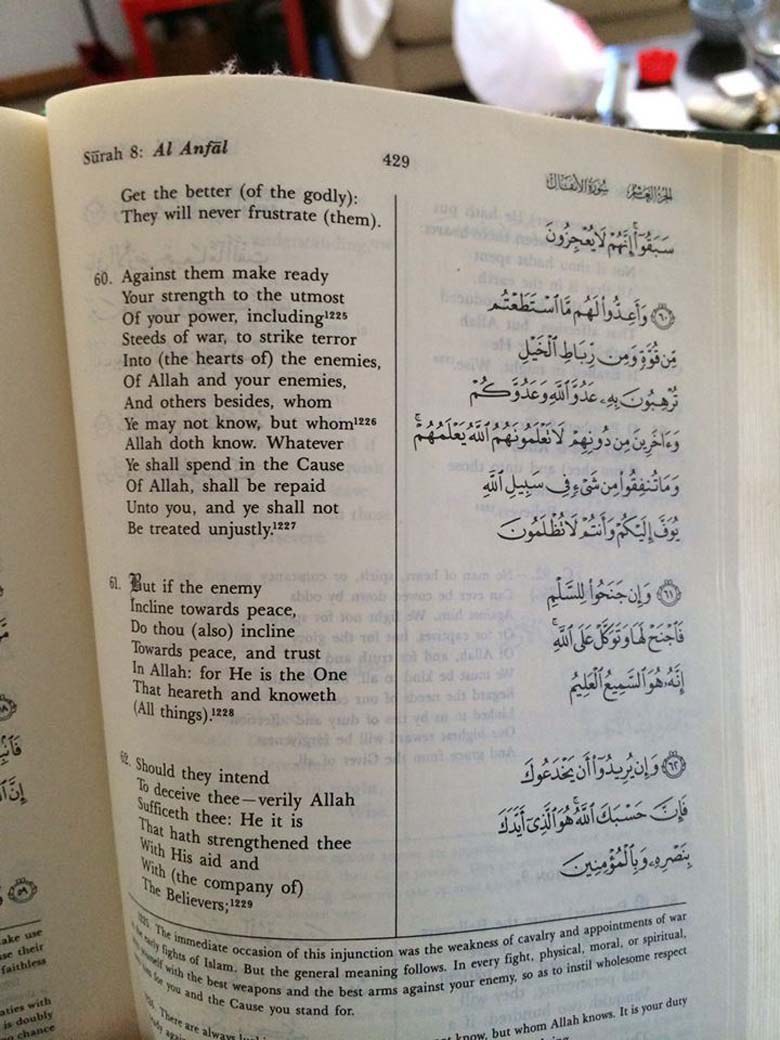 Sūrah 8: Al Anfāl
429
الجزء العاشر سورة الأنفال
Get the better (of the godly):
They will never frustrate (them).
60. Against them make ready
Your strength to the utmost
Of your power, including¹²²⁵
Steeds of war, to strike terror
Into (the hearts of) the enemies,
Of Allah and your enemies,
And others besides, whom
Ye may not know, but whom¹²²⁶
Allah doth know. Whatever
Ye shall spend in the Cause
Of Allah, shall be repaid
Unto you, and ye shall not
Be treated unjustly.¹²²⁷
61. But if the enemy
Incline towards peace,
Do thou (also) incline
Towards peace, and trust
In Allah: for He is the One
That heareth and knoweth
(All things).¹²²⁸
62. Should they intend
To deceive thee—verily Allah
Sufficeth thee: He it is
That hath strengthened thee
With His aid and
With (the company of)
The Believers;¹²²⁹
سَبَقُوٓا۟ ۚ إِنَّهُمْ لَا يُعْجِزُونَ
٦٠ وَأَعِدُّوا۟ لَهُم مَّا ٱسْتَطَعْتُم
مِّن قُوَّةٍ وَمِن رِّبَاطِ ٱلْخَيْلِ
تُرْهِبُونَ بِهِۦ عَدُوَّ ٱللَّهِ وَعَدُوَّكُمْ
وَءَاخَرِينَ مِن دُونِهِمْ لَا تَعْلَمُونَهُمُ ٱللَّهُ يَعْلَمُهُمْ ۚ
وَمَا تُنفِقُوا۟ مِن شَىْءٍ فِى سَبِيلِ ٱللَّهِ
يُوَفَّ إِلَيْكُمْ وَأَنتُمْ لَا تُظْلَمُونَ
٦١ وَإِن جَنَحُوا۟ لِلسَّلْمِ
فَٱجْنَحْ لَهَا وَتَوَكَّلْ عَلَى ٱللَّهِ ۚ
إِنَّهُۥ هُوَ ٱلسَّمِيعُ ٱلْعَلِيمُ
٦٢ وَإِن يُرِيدُوٓا۟ أَن يَخْدَعُوكَ
فَإِنَّ حَسْبَكَ ٱللَّهُ ۚ هُوَ ٱلَّذِىٓ أَيَّدَكَ
بِنَصْرِهِۦ وَبِٱلْمُؤْمِنِينَ
1225. The immediate occasion of this injunction was the weakness of cavalry and appointments of war
the early fights of Islam. But the general meaning follows. In every fight, physical, moral, or spiritual,
yourself with the best weapons and the best arms against your enemy, so as to instil wholesome respect
for you and the Cause you stand for.
There are always
know, but whom Allah knows. It is your duty